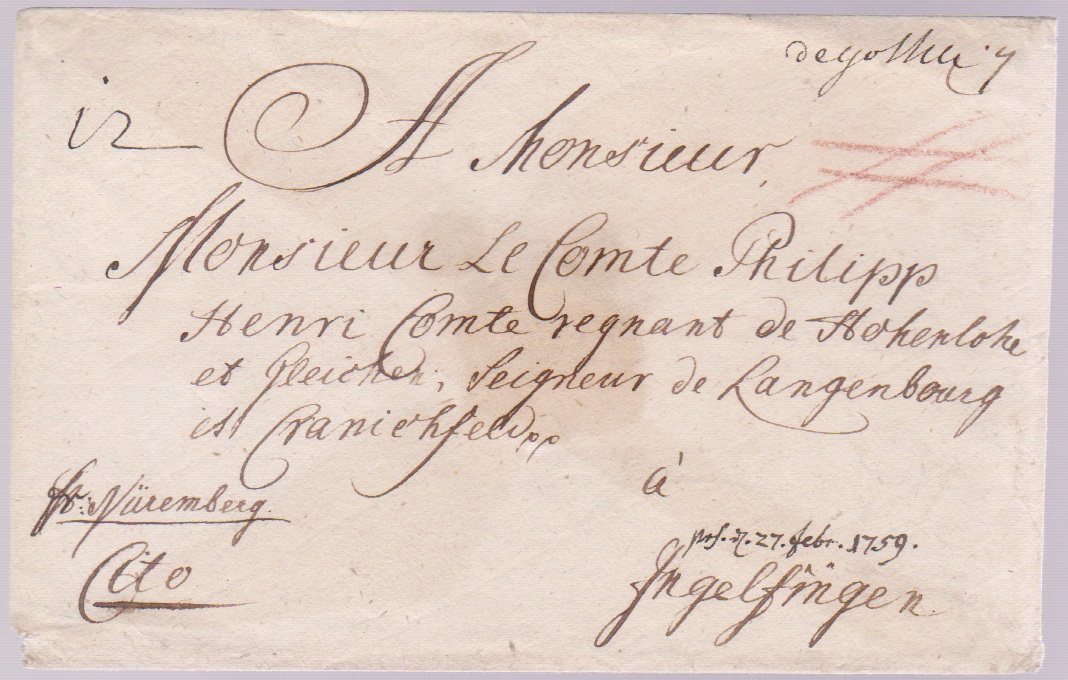 de gotha
12
A Monsieur,
Monsieur Le Comte Philipp
Henri Comte regnant de Hohenlohe
et Gleichen, Seigneur de Langenbourg
et Cranichfeld pp
à
fr: Nüremberg.
Cito
prs. d. 27. febr. 1759.
Ingelfingen